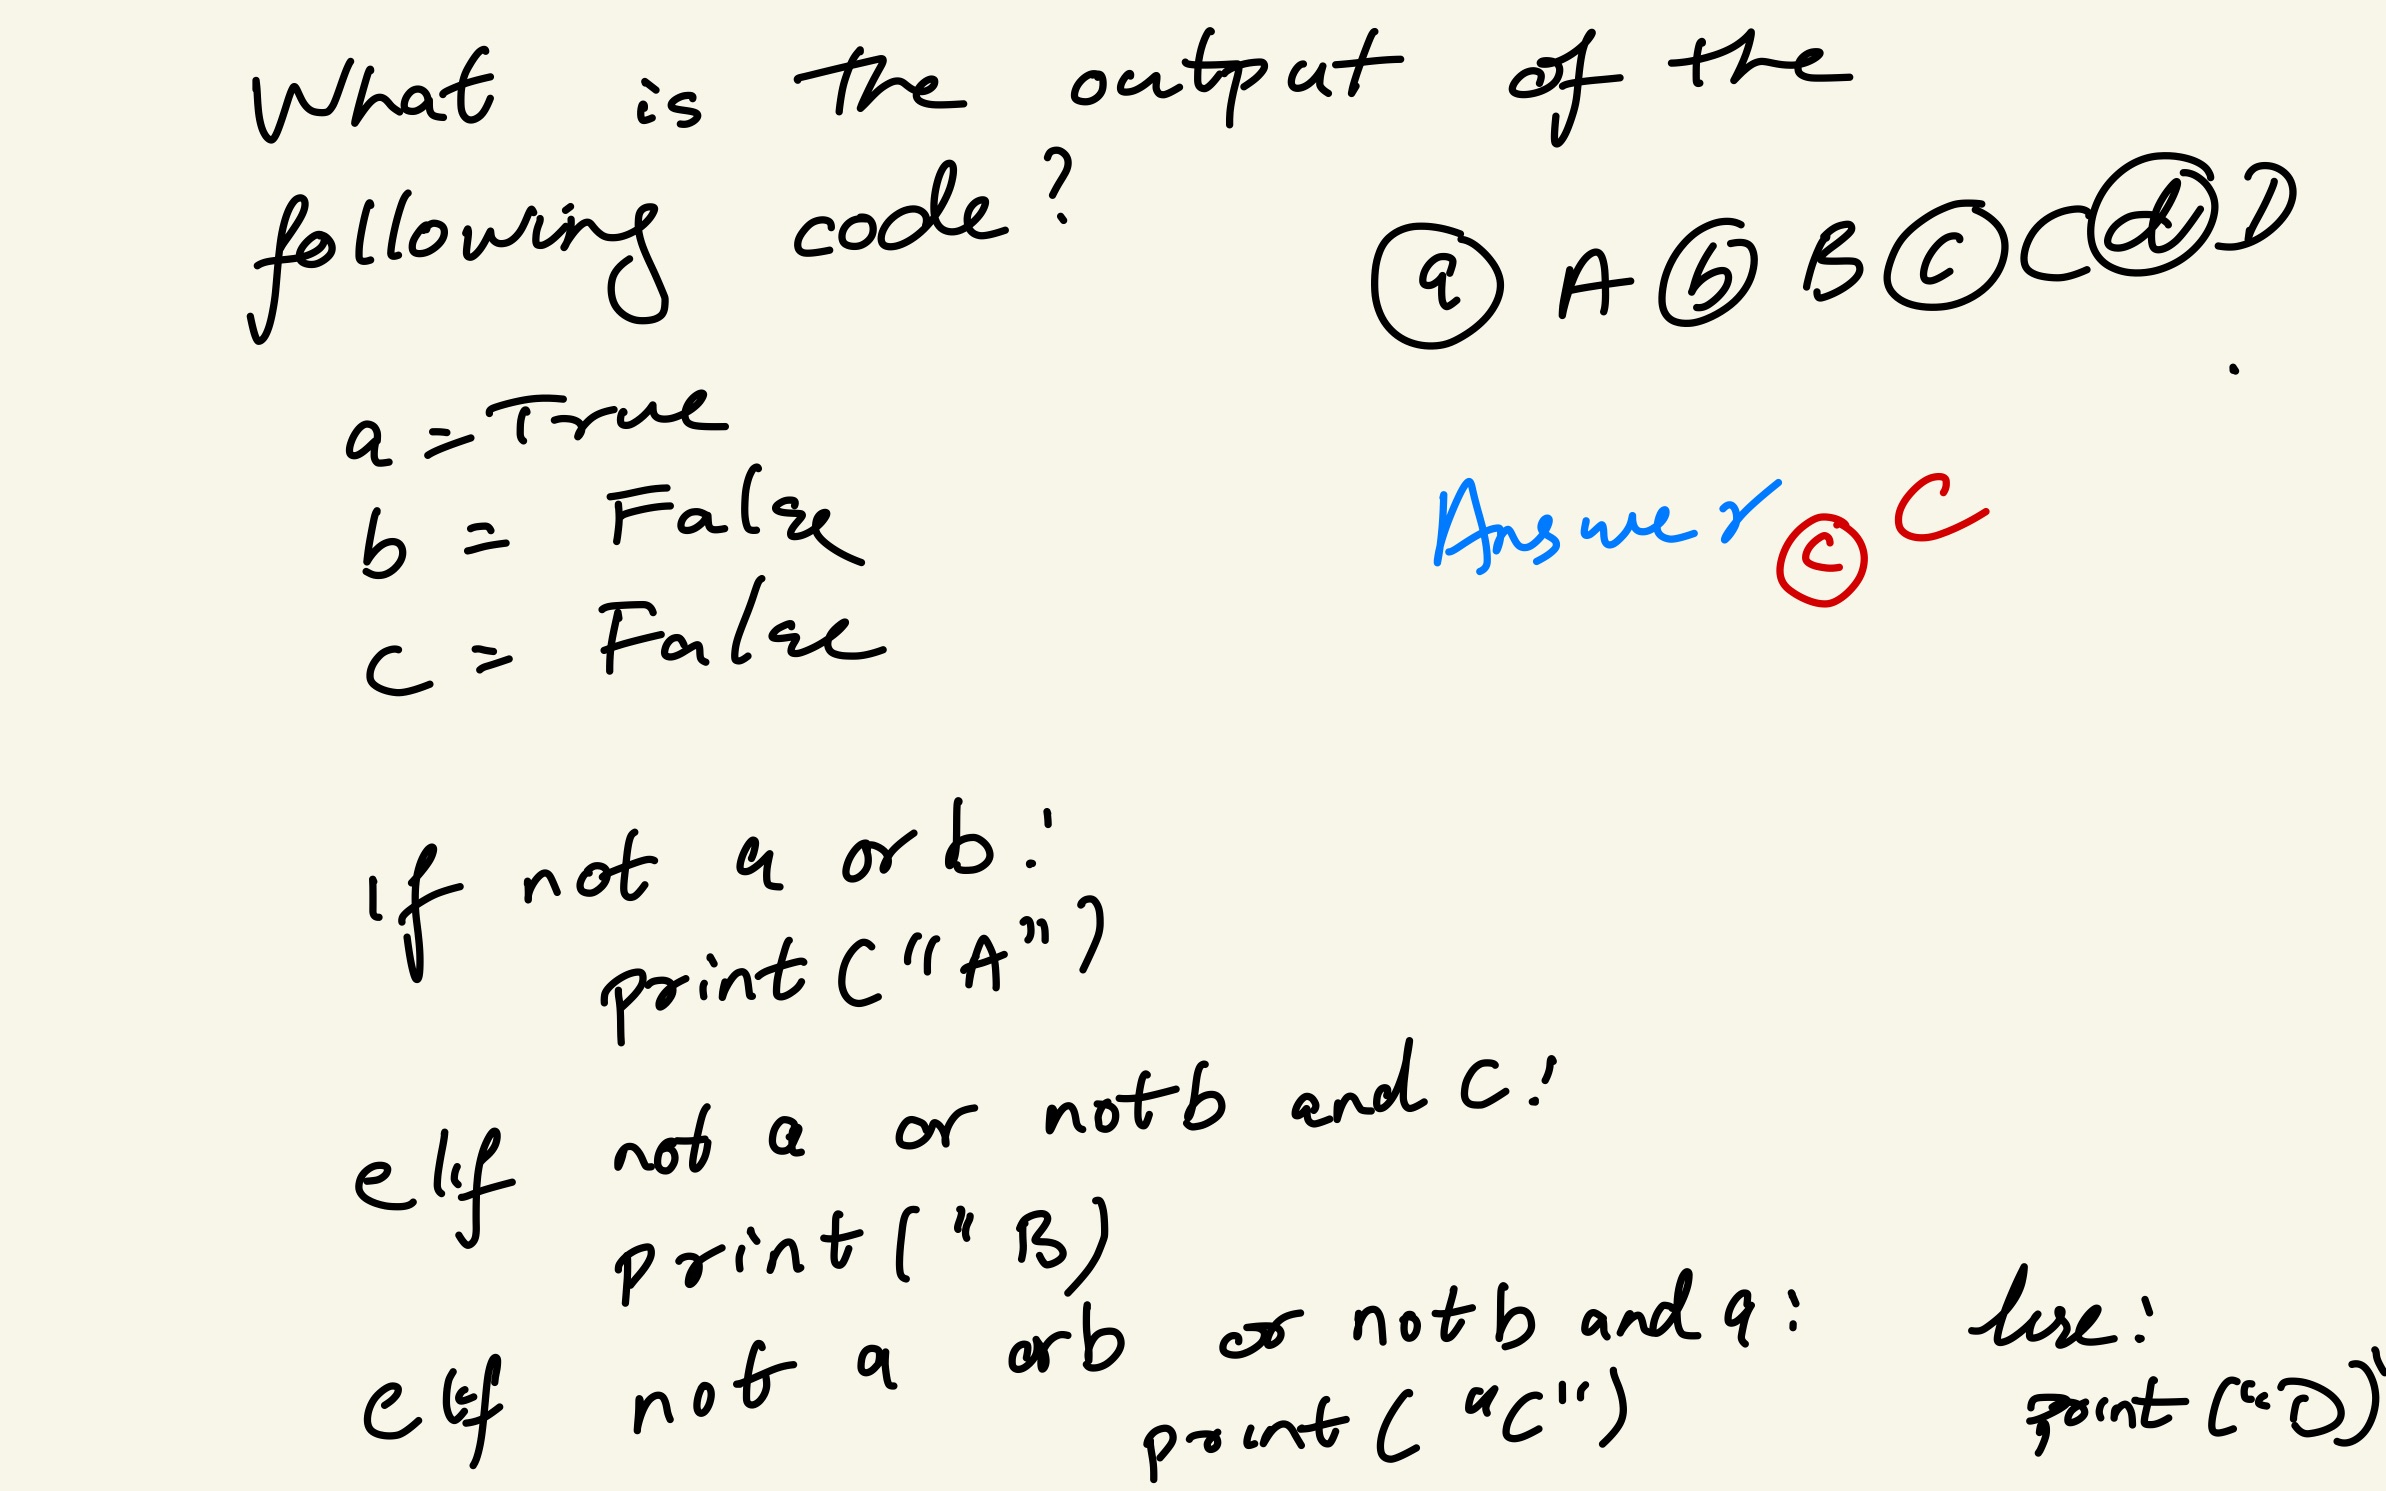 What is the output of the
following code?
ⓐ A ⓑ B ⓒ C ⓓ D
a = True
b = False
c = False
Answer ⓒ C
if not a or b:
print("A")
elif not a or not b and c:
print("B)
elif not a or b or not b and a:
print("C")
else:
print("D")